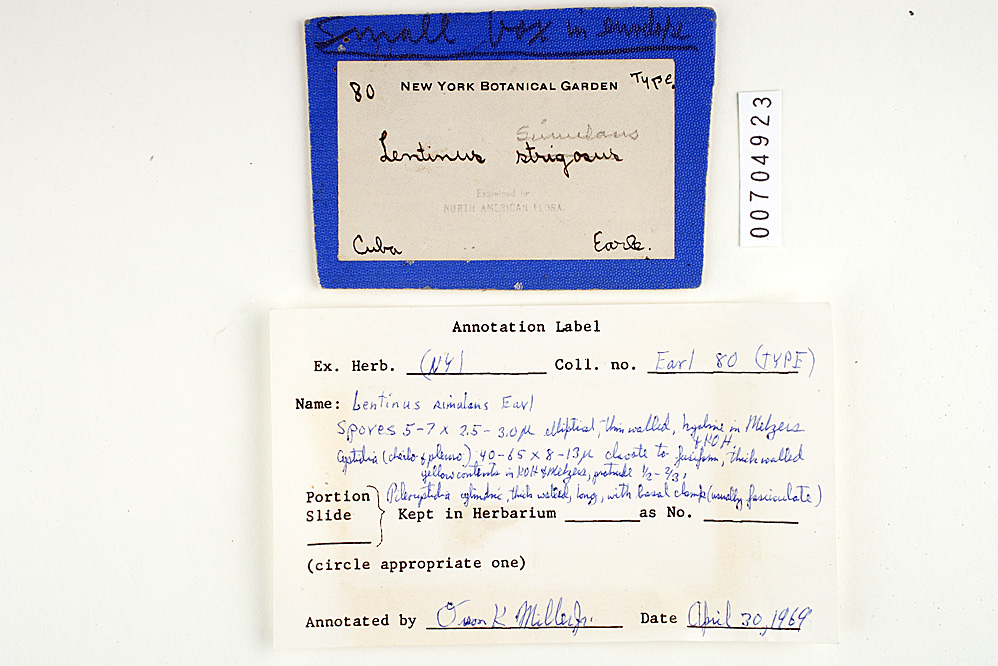 Small box in envelope
80 NEW YORK BOTANICAL GARDEN Type.
simulans
Lentinus strigosus
Examined for
NORTH AMERICAN FLORA.
Cuba Earle.
00704923
Annotation Label
Ex. Herb. (NY) Coll. no. Earl 80 (TYPE)
Name: Lentinus simulans Earl
Spores 5-7 x 2.5-3.0µ elliptical, thin walled, hyaline in Melzers
& KOH
Cystidia (cheilo & pleuro), 40-65 x 8-13µ clavate to fusiform, thick walled
yellow contents in KOH & Melzers, protrude 1/2-2/3;
Pileocystidia cylindric, thick walled, long, with basal clamp (usually fasciculate)
Portion
Slide Kept in Herbarium as No.
(circle appropriate one)
Annotated by Orson K Miller Jr. Date April 30, 1969